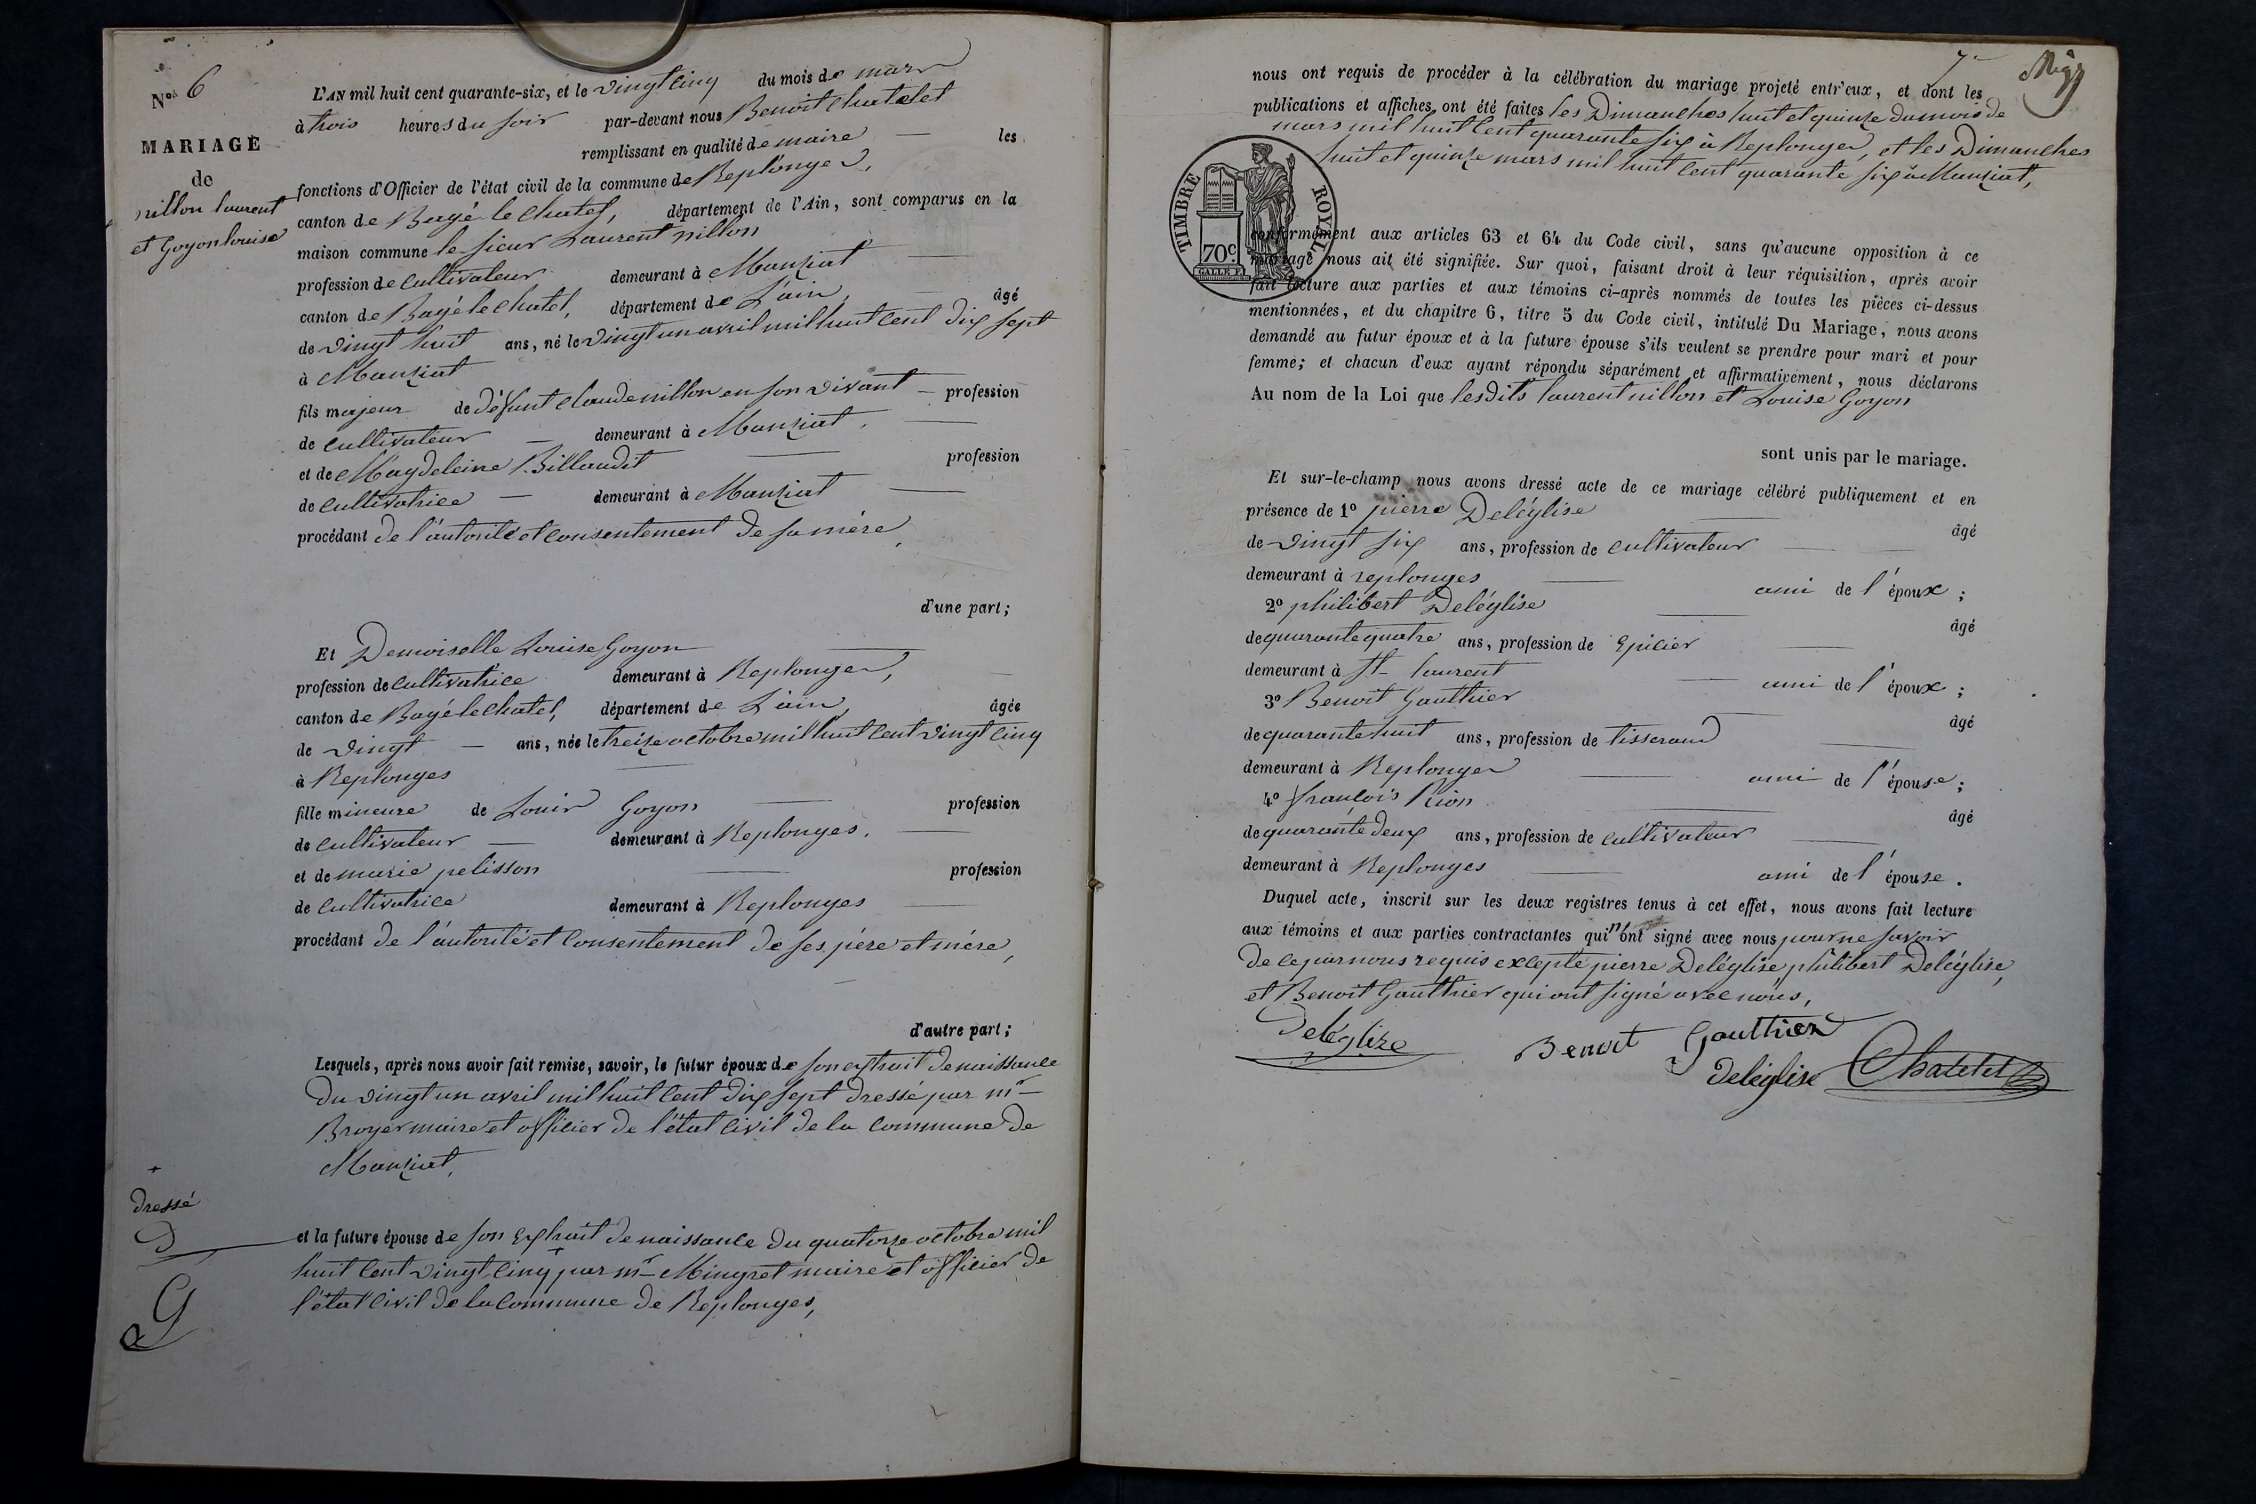 Nos 6
MARIAGE
de
nillon laurent
et Goyon louise
L'AN mil huit cent quarante-six, et le vingt cinq du mois de mars
à trois heures du soir par-devant nous Benoit Chatelet
remplissant en qualité de maire les
fonctions d'Officier de l'état civil de la commune de Replonges,
canton de Bagé le Chatel, département de l'Ain, sont comparus en la
maison commune le sieur Laurent nillon
profession de cultivateur demeurant à Manziat
canton de Bagé le chatel, département de L'ain, âgé
de vingt huit ans, né le vingt un avril mil huit cent dix sept
à Manziat
fils majeur de défunt claude nillon en son vivant profession
de cultivateur demeurant à Manziat,
et de Magdeleine Billaudit profession
de cultivatrice demeurant à Manziat
procédant de l'autorité et consentement de sa mère,
d'une part;
Et Demoiselle Louise Goyon
profession de cultivatrice demeurant à Replonges,
canton de Bagé le chatel, département de L'ain, âgée
de vingt ans, née le treize octobre mil huit cent vingt cinq
à Replonges
fille mineure de Louis Goyon profession
de cultivateur demeurant à Replonges.
et de marie pelisson profession
de cultivatrice demeurant à Replonges
procédant de l'autorité et consentement de ses père et mère,
d'autre part;
Lesquels, après nous avoir fait remise, savoir, le futur époux de son extrait de naissance
du vingt un avril mil huit cent dix sept dressé par mr
Broyer maire et officier de l'état civil de la commune de
Manziat,
+
dressé
D
G
et la future épouse de son extrait de naissance du quatorze octobre mil
huit cent vingt cinq + par mr Mingret maire et officier de
l'état civil de la commune de Replonges,
7e
nous ont requis de procéder à la célébration du mariage projeté entr'eux, et dont les
publications et affiches ont été faites les Dimanches huit et quinze du mois de
mars mil huit cent quarante six à Replonges, et les Dimanches
huit et quinze mars mil huit cent quarante six à Manziat,
TIMBRE ROYAL
70c.
conformément aux articles 63 et 64 du Code civil, sans qu'aucune opposition à ce
mariage nous ait été signifiée. Sur quoi, faisant droit à leur réquisition, après avoir
fait lecture aux parties et aux témoins ci-après nommés de toutes les pièces ci-dessus
mentionnées, et du chapitre 6, titre 5 du Code civil, intitulé Du Mariage, nous avons
demandé au futur époux et à la future épouse s'ils veulent se prendre pour mari et pour
femme; et chacun d'eux ayant répondu séparément et affirmativement, nous déclarons
Au nom de la Loi que lesdits laurent nillon et Louise Goyon
sont unis par le mariage.
Et sur-le-champ nous avons dressé acte de ce mariage célébré publiquement et en
présence de 1o pierre Deléglise âgé
de vingt six ans, profession de cultivateur
demeurant à replonges ami de l'époux;
2o philibert Deléglise âgé
de quarante quatre ans, profession de Epicier
demeurant à St laurent ami de l'époux;
3o Benoit Gauthier âgé
de quarante huit ans, profession de tisserand
demeurant à Replonges ami de l'épouse;
4o françois Pion âgé
de quarante deux ans, profession de cultivateur
demeurant à Replonges ami de l'épouse.
Duquel acte, inscrit sur les deux registres tenus à cet effet, nous avons fait lecture
aux témoins et aux parties contractantes qui n'ont signé avec nous pour ne savoir
de ce par nous requis excepté pierre Deléglise philibert Deléglise,
et Benoit Gauthier qui ont signé avec nous,
Deléglize
Benoit Gauthier
deléglise
Chatelet